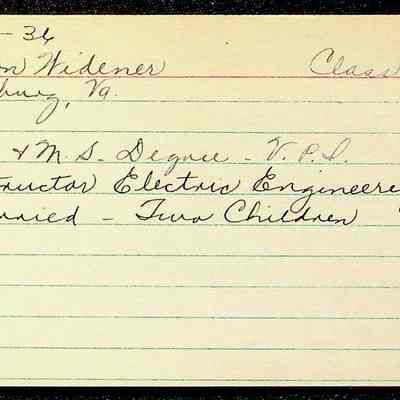 - 36
on Widener Class
burg, Va.
& M.S. Degree - V.P.I.
tructor Electric Engineere
rried - Two Children